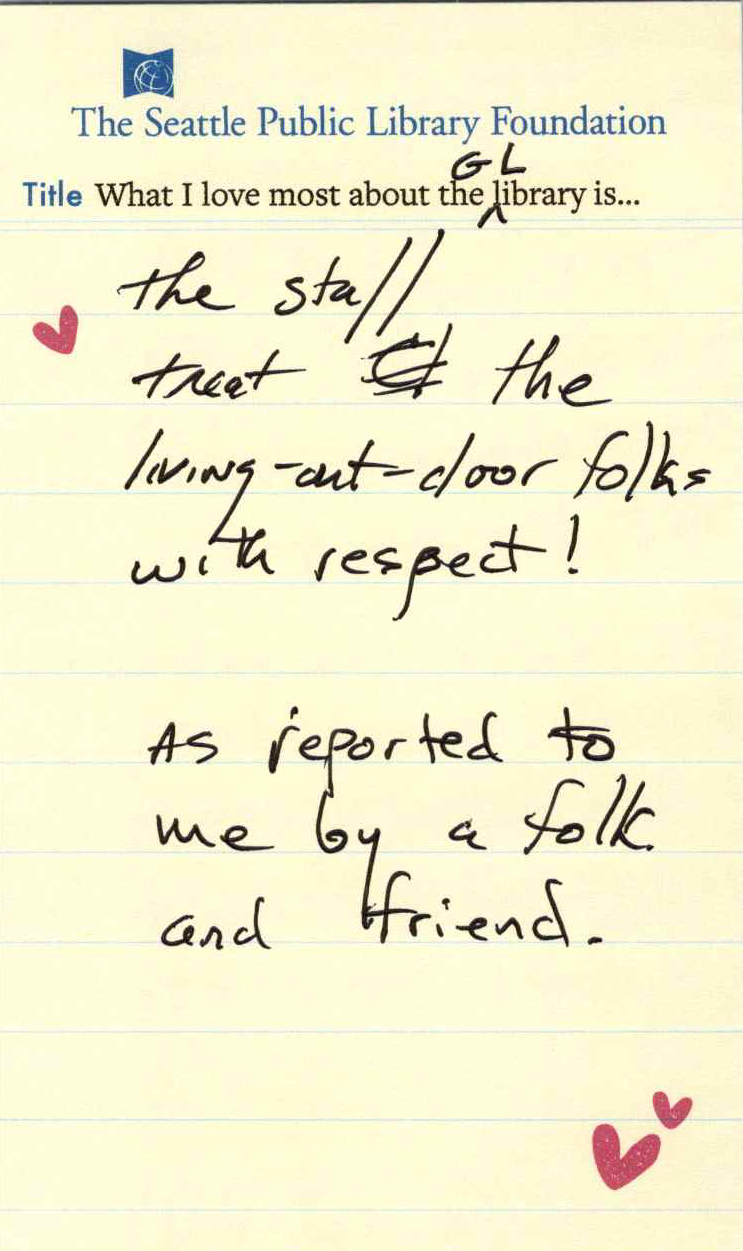 The Seattle Public Library Foundation
Title What I love most about the GL library is...
the staff
treat the
living-out-door folks
with respect!
As reported to
me by a folk
and friend.